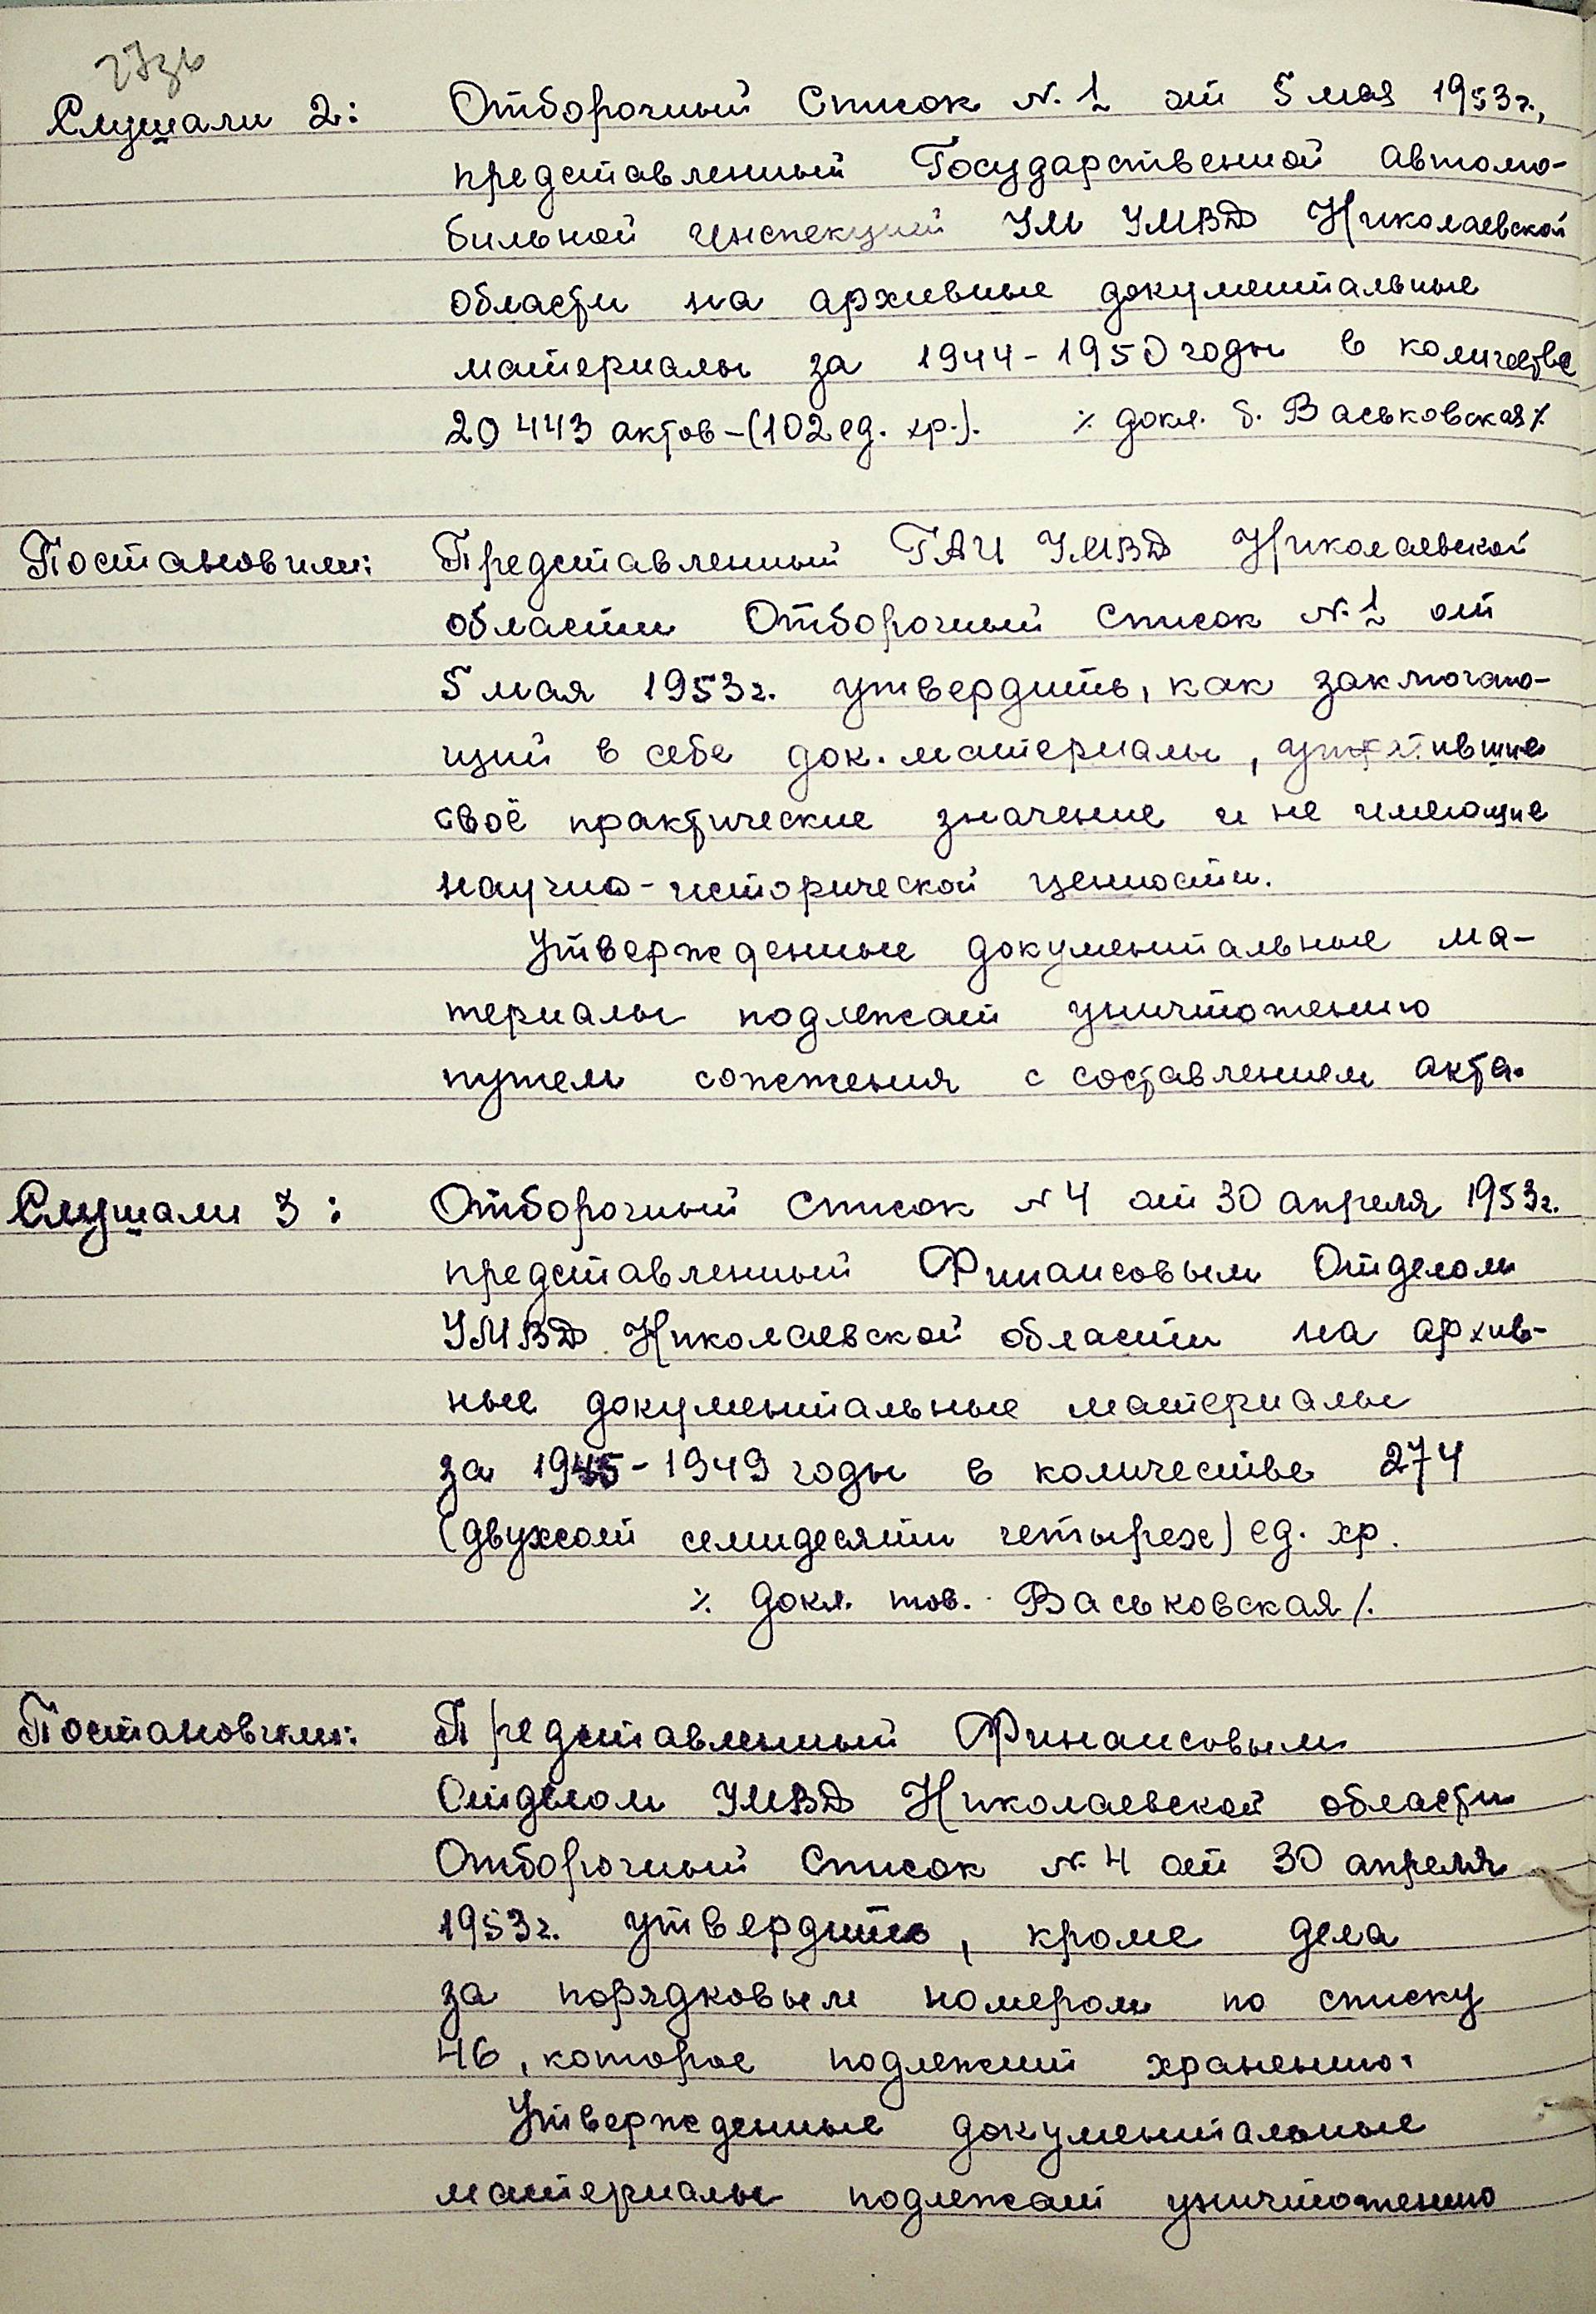 27зв
Слушали 2: Отборочный Список №1 от 5 мая 1953г.,
представленный Государственной автомо-
бильной инспекцией УМ УМВД Николаевской
области на архивные документальные
материалы за 1944-1950 годы в количестве
20 443 актов-(102 ед. хр.). ·/· докл. т. Васьковская/.
Постановили: Представленный ГАИ УМВД Николаевской
области Отборочный Список №1 от
5 мая 1953г. утвердить, как заключаю-
щий в себе док. материалы, утратившие
своё практические значение и не имеющие
научно-исторической ценности.
Утвержденные документальные ма-
териалы подлежат уничтожению
путем сожжения с составлением акта.
Слушали 3: Отборочный Список №4 от 30 апреля 1953г.
представленный Финансовым Отделом
УМВД Николаевской области на архив-
ные документальные материалы
за 1945-1949 годы в количестве 274
(двухсот семидесяти четырех) ед. хр.
·/· докл. тов. Васьковская/.
Постановили: Представленный Финансовым
Отделом УМВД Николаевской области
Отборочный Список №4 от 30 апреля
1953г. утвердить, кроме дела
за порядковым номером по списку
46, которое подлежит хранению.
Утвержденные документальные
материалы подлежат уничтожению